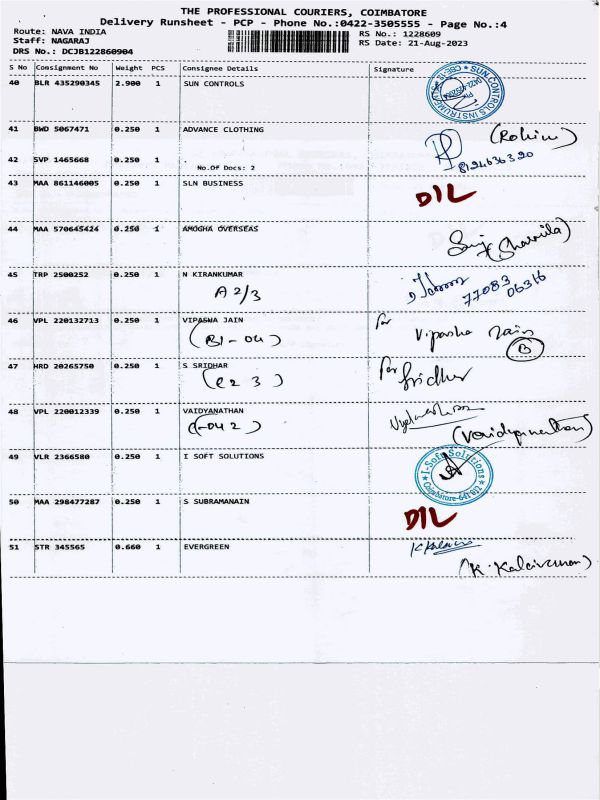 THE PROFESSIONAL COURIERS, COIMBATORE
Delivery Runsheet - PCP - Phone No.:0422-3505555 - Page No.:4
Route: NAVA INDIA RS No.: 1228609
Staff: NAGARAJ RS Date: 21-Aug-2023
DRS No.: DCJB122860904
S No Consignment No Weight PCS Consignee Details Signature
40 BLR 435290345 2.900 1 SUN CONTROLS
SUN CONTROLS INSTRUMENTS
41 BWD 5067471 0.250 1 ADVANCE CLOTHING (Rohini)
8124636320
42 SVP 1465668 0.250 1
No.Of Docs: 2
43 MAA 861146005 0.250 1 SLN BUSINESS
DIL
44 MAA 570645424 0.250 1 AMOGHA OVERSEAS
(Sharmila)
45 TRP 2500252 0.250 1 N KIRANKUMAR
A 2/3 77083
06316
46 VPL 220132713 0.250 1 VIPASHA JAIN for
(B1-04) Vipasha Jain
B
47 HRD 20265750 0.250 1 S SRIDHAR for Sridhar
(C2 3)
48 VPL 220012339 0.250 1 VAIDYANATHAN
(Vaidyanathan)
49 VLR 2366580 0.250 1 I SOFT SOLUTIONS
I-Soft Solutions
Coimbatore-641 012
50 MAA 298477287 0.250 1 S SUBRAMANAIN
DIL
51 STR 345565 0.660 1 EVERGREEN